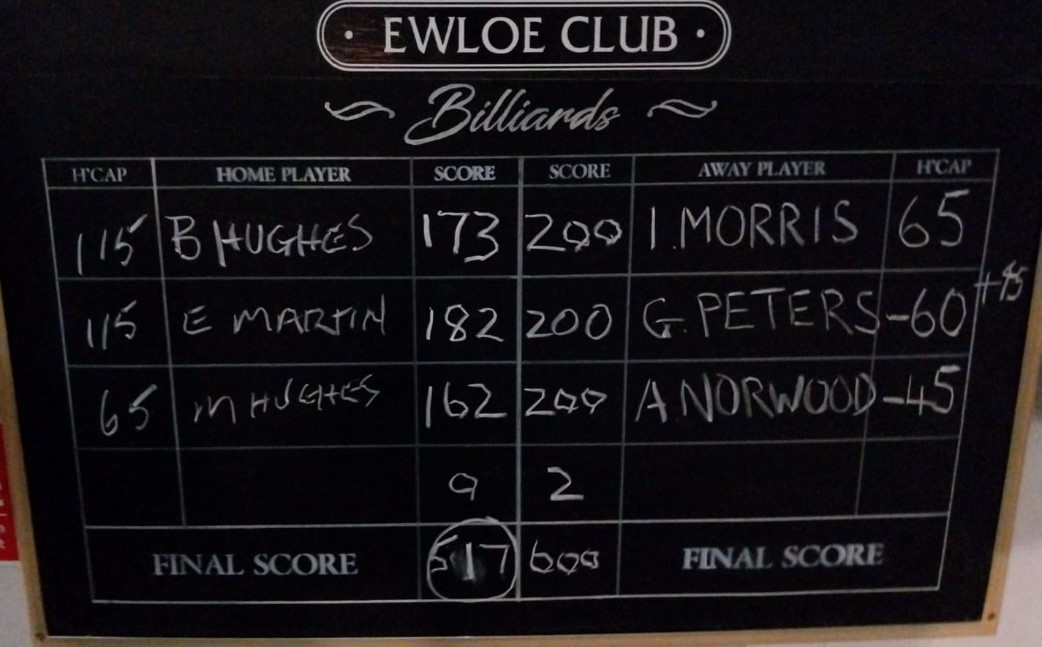 · EWLOE CLUB ·
Billiards
H'CAP HOME PLAYER SCORE SCORE AWAY PLAYER H'CAP
115 B HUGHES 173 200 I. MORRIS 65
115 E MARTIN 182 200 G. PETERS -60
65 M HUGHES 162 200 A NORWOOD -45
9 2
FINAL SCORE 517 600 FINAL SCORE